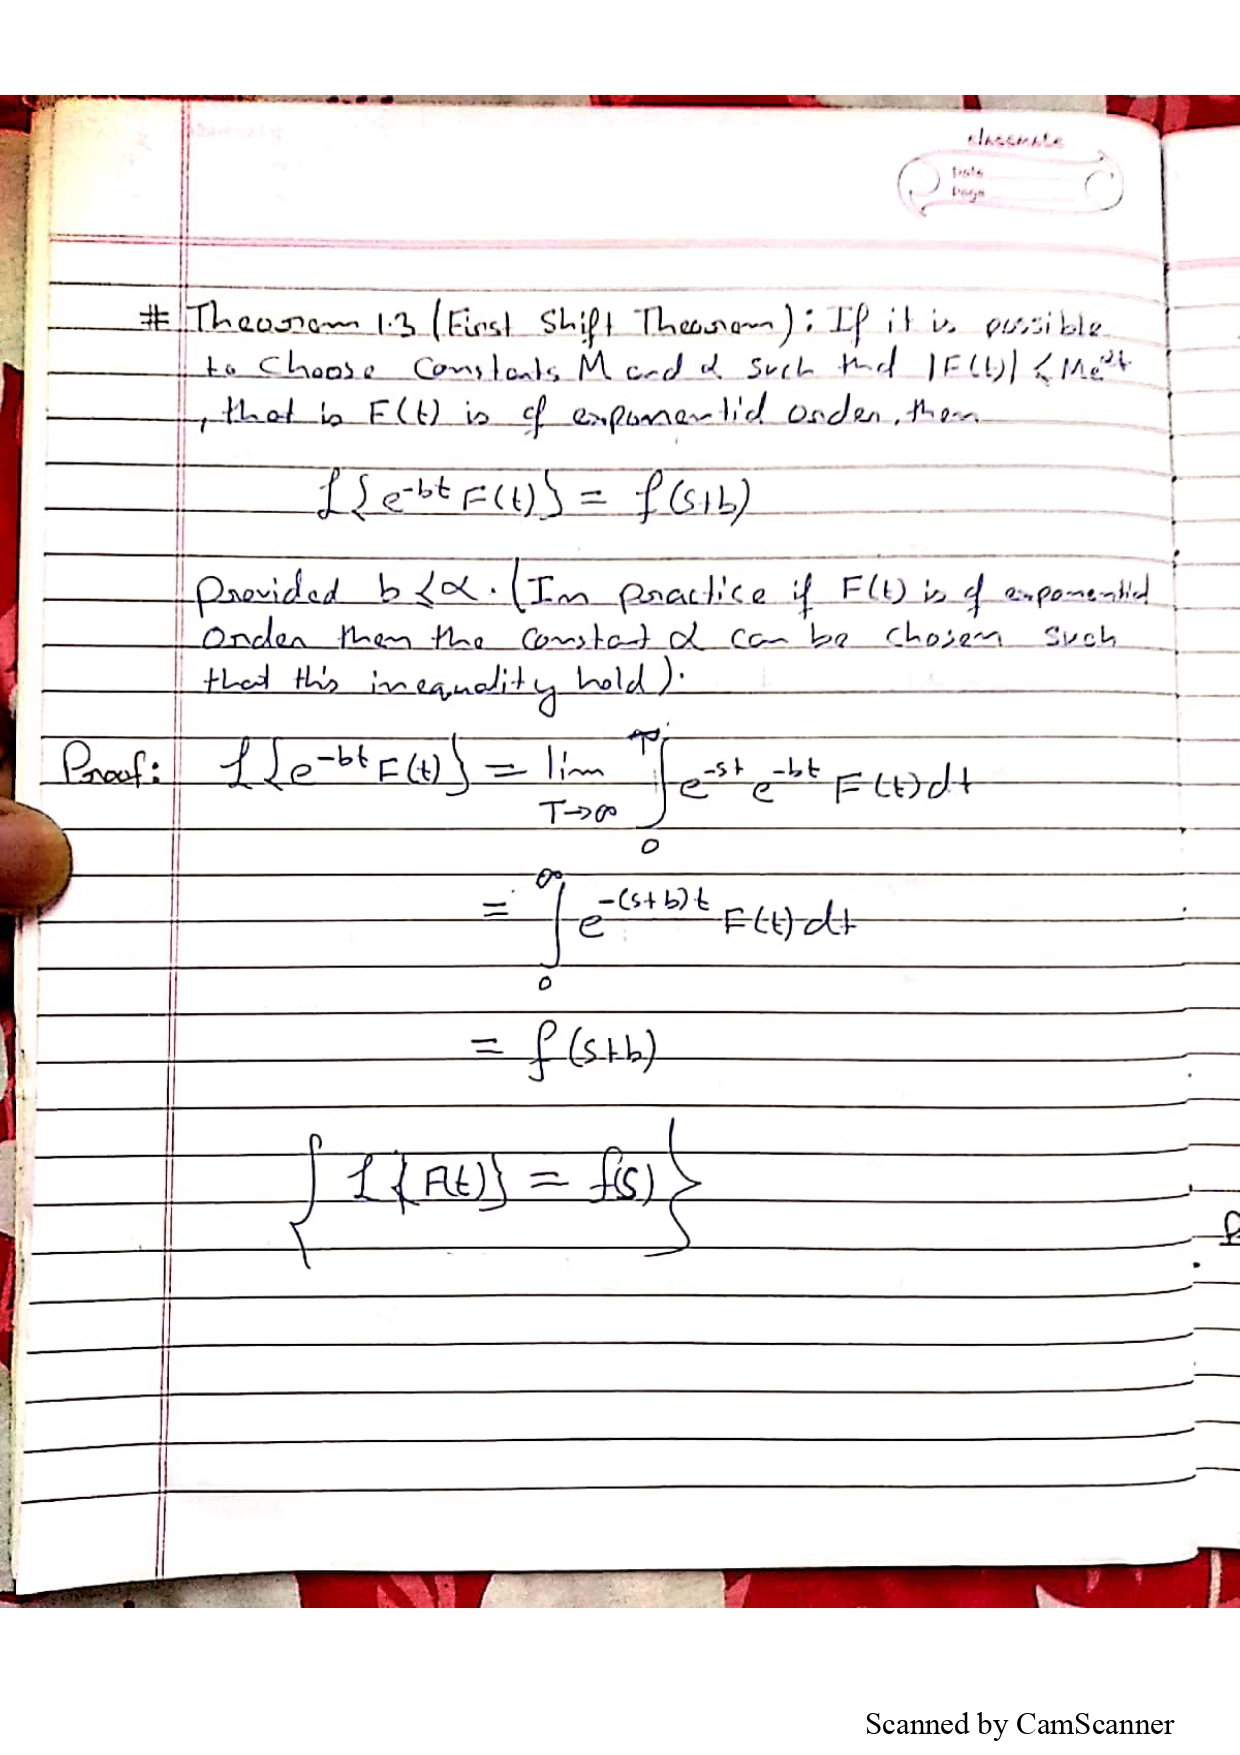 classmate
Date
Page
# Theorem 1.3 (First Shift Theorem): If it is possible
to choose constants M and α such that |F(t)| < Me^αt
, that is F(t) is of exponential order, then
L{e^-bt F(t)} = f(s+b)
provided b < α. (In practice if F(t) is of exponential
order then the constant α can be chosen such
that this inequality hold).
Proof: L{e^-bt F(t)} = lim T→∞ ∫₀^T e^-st e^-bt F(t) dt
= ∫₀^∞ e^-(s+b)t F(t) dt
= f(s+b)
{ L{F(t)} = f(s) }
Scanned by CamScanner